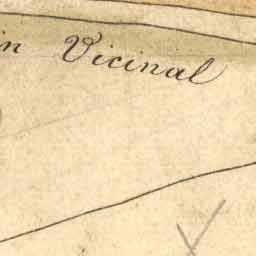 in Vicinal